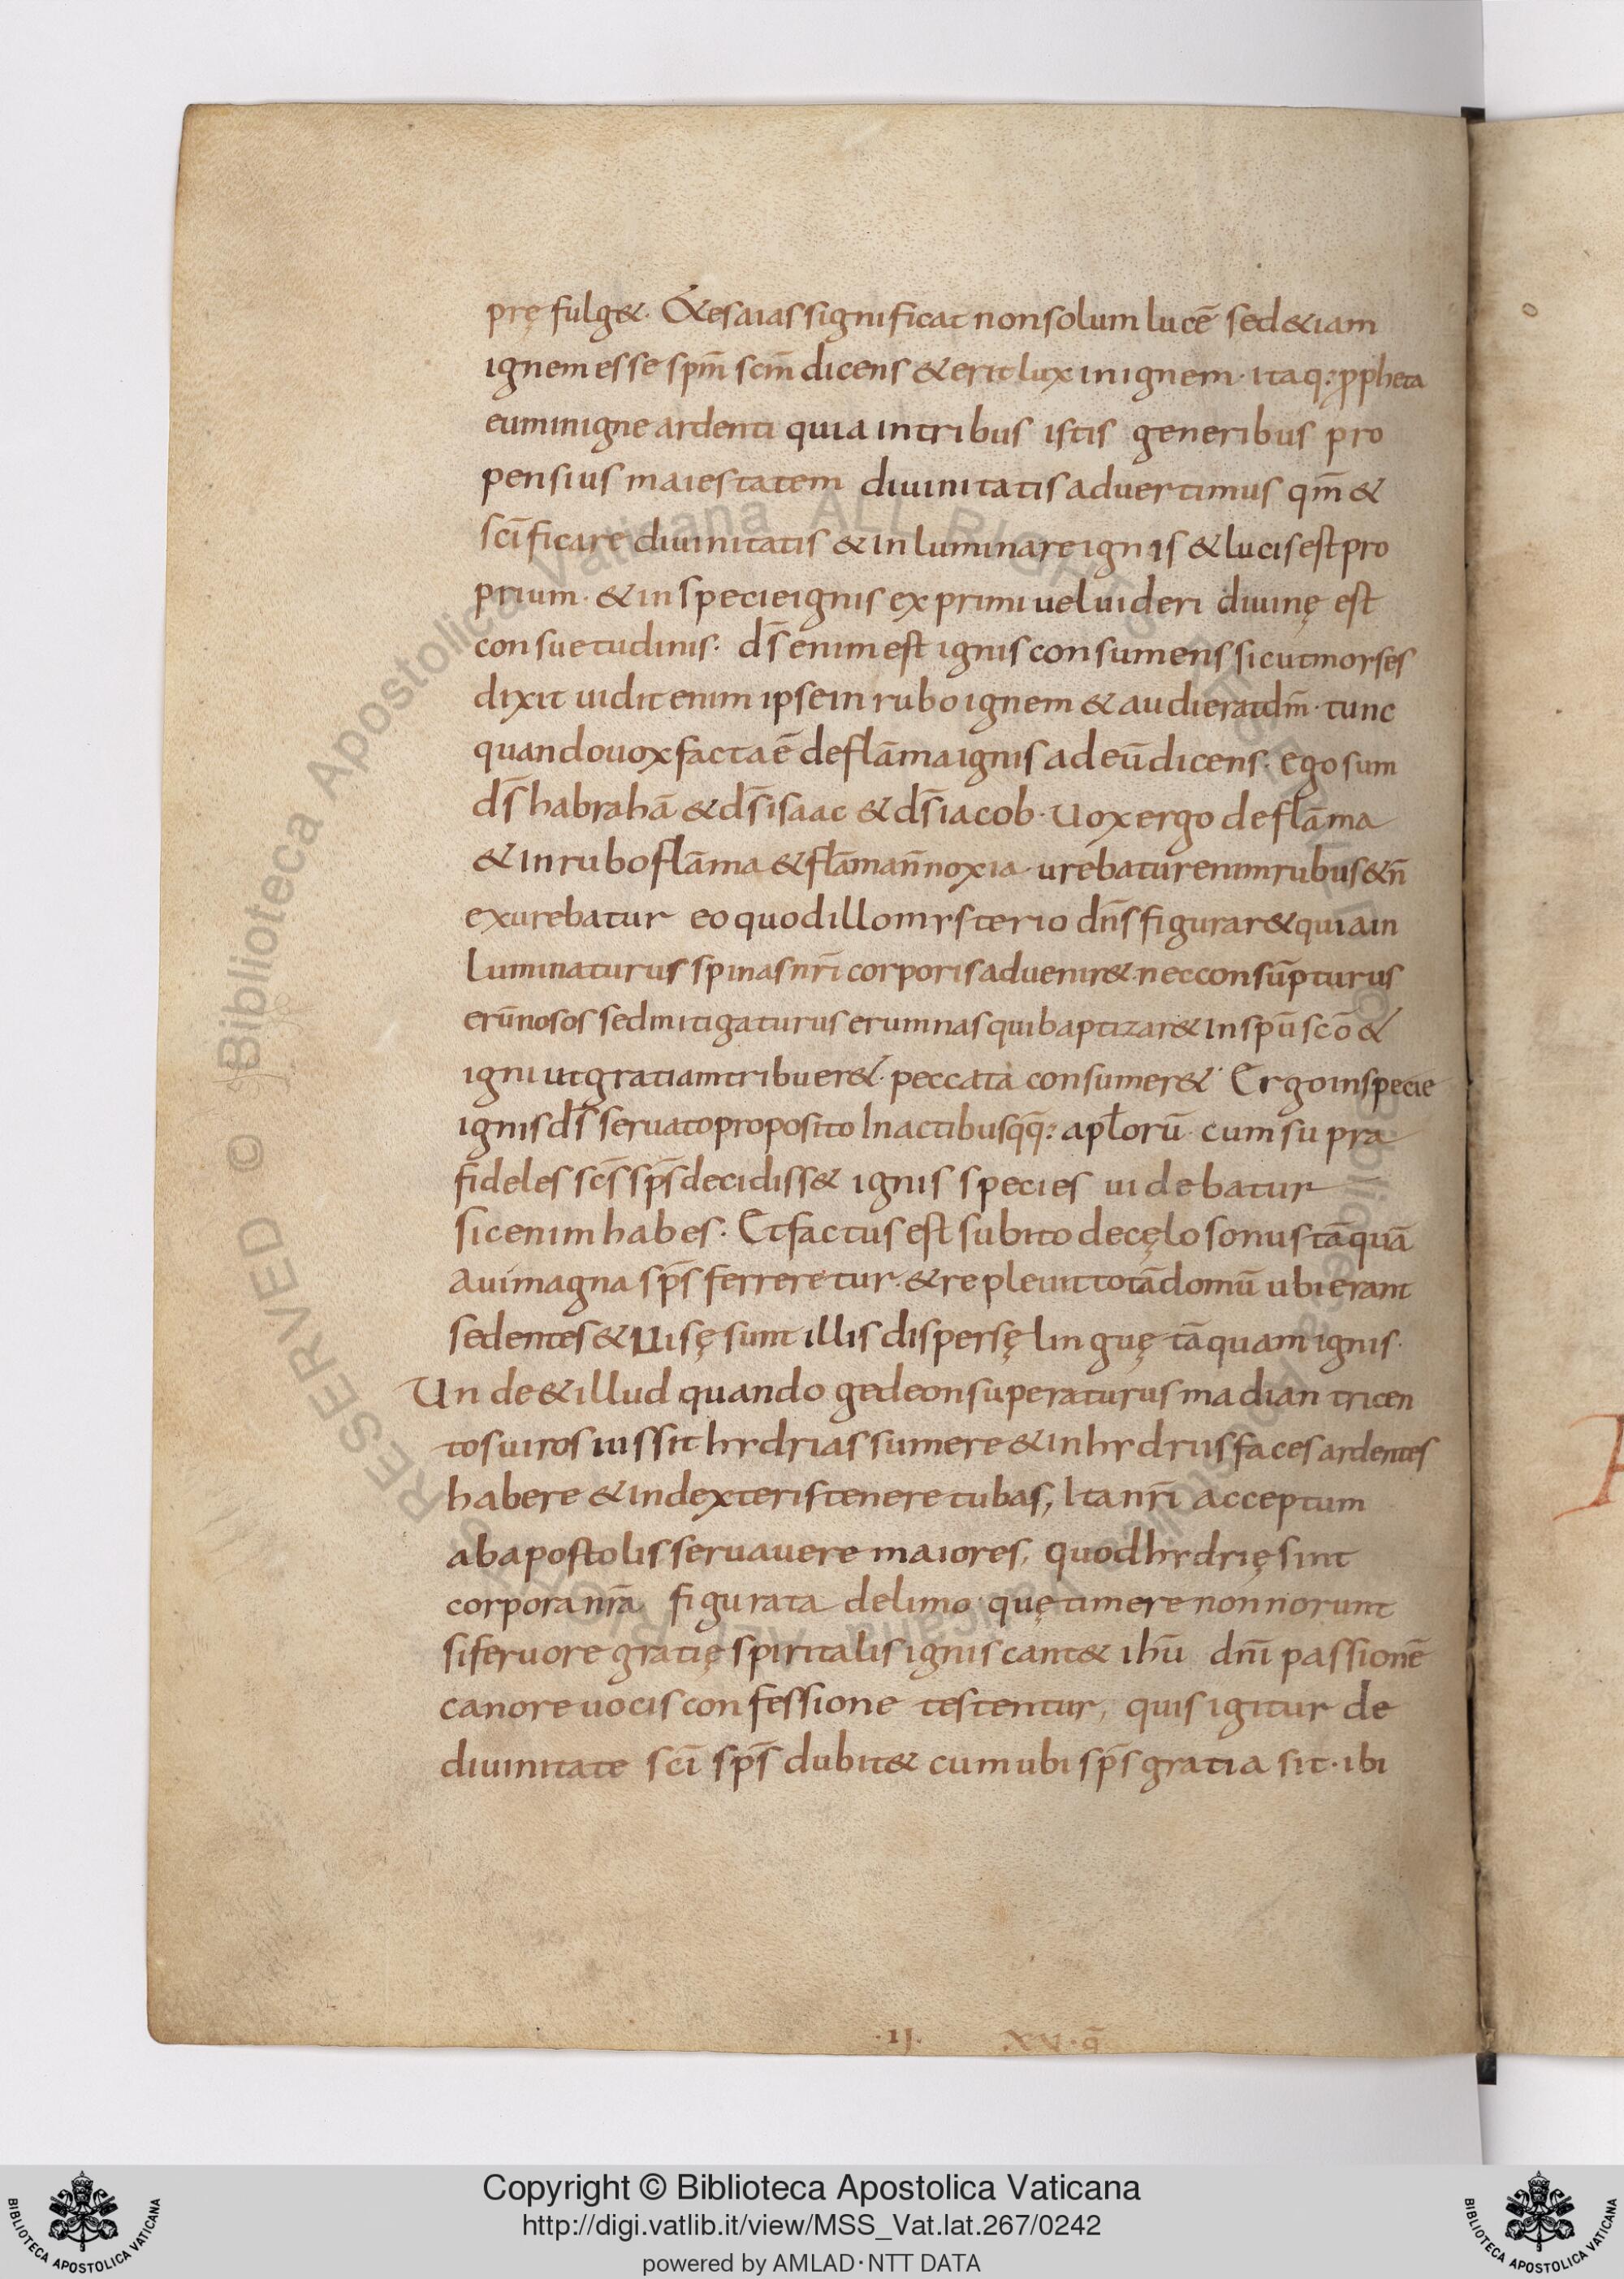 prę fulg&. &esaias significat non solum lucē sed &iam
ignem esse spm̄ scm̄ dicens & erit lux in ignem · itaq: ꝓpheta
eum in igne ardenti quia in tribus istis generibus pro
pensius maiestatem diuinitatis aduertimus qm̄ &
scīficare diuinitatis & inluminare ignis & lucis est pro
prium · & in specie ignis exprimi uel uideri diuinę est
consuetudinis · ds̄ enim est ignis consumens sicut moyses
dixit uidit enim ipse in rubo ignem & audierat dm̄ · tunc
quando uox facta ē de flāma ignis ad eū dicens · ego sum
ds̄ habrahā & ds̄ isaac & ds̄ iacob · Uox ergo de flāma
& in rubo flāma & flāma n̄ noxia · urebatur enim rubus & n̄
exurebatur eo quod illo mysterio dn̄s figurar& quia in
luminaturus spinas nr̄i corporis aduenir& · nec consūpturus
erūnosos sed mitigaturus erumnas qui baptizar& in spū scō &
igni ut gratiam tribuer& · peccata consumer& · Ergo in specie
ignis ds̄ seruato proposito In actibus qq̄: apl̄orū · cum supra
fideles scs̄ sps̄ decidiss& ignis species uidebatur
sic enim habes · Et factus est subito de cęlo sonus tāquā
a ui magna sps̄ ferreretur · & repleuit totā domū ubi erant
sedentes & uisę sunt illis dispersę linguę tāquam ignis ·
Unde & illud quando gedeon superaturus madian tricen
tos uiros iussit hydrias sumere & in hydriis faces ardentes
habere & in dexteris tenere tubas, Ita nr̄i acceptum
ab apostolis seruauere maiores, quod hydrię sint
corpora nr̄a figurata de limo · quę timere non norunt
si feruore gratię spiritalis ignis cant& ihū dn̄i passionē
canore uocis confessione testentur, quis igitur de
diuinitate scī sps̄ dubit& cum ubi sps̄ gratia sit · ibi
·II. XVI · q̄
Copyright © Biblioteca Apostolica Vaticana
http://digi.vatlib.it/view/MSS_Vat.lat.267/0242
powered by AMLAD · NTT DATA
BIBLIOTECA APOSTOLICA VATICANA
BIBLIOTECA APOSTOLICA VATICANA